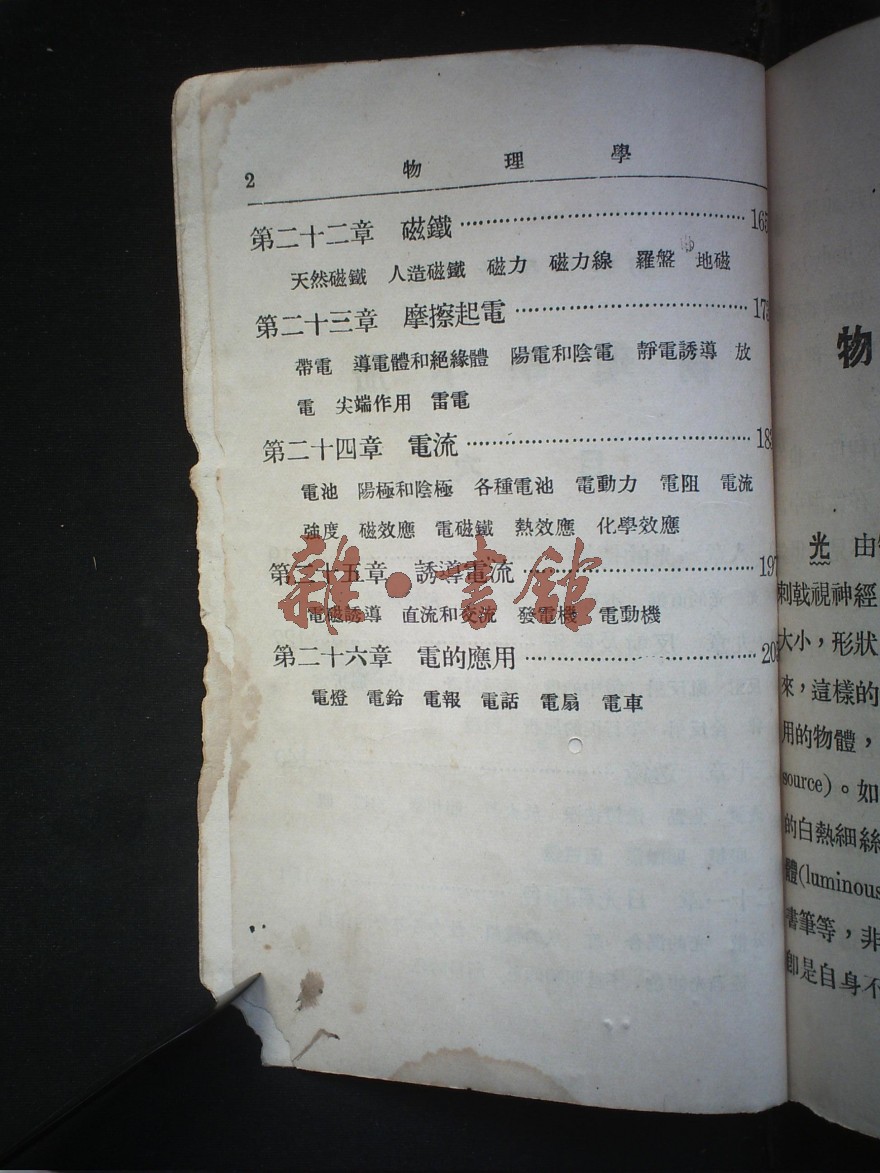 2 物理學
第二十二章 磁鐵……165
天然磁鐵 人造磁鐵 磁力 磁力線 羅盤 地磁
第二十三章 摩擦起電……17
帶電 導電體和絕緣體 陽電和陰電 靜電誘導 放
電 尖端作用 雷電
第二十四章 電流……18
電池 陽極和陰極 各種電池 電動力 電阻 電流
強度 磁效應 電磁鐵 熱效應 化學效應
第二十五章 誘導電流……197
電磁誘導 直流和交流 發電機 電動機
第二十六章 電的應用……20
電燈 電鈴 電報 電話 電扇 電車
雜·書館
物
光 由
刺戟視神經
大小，形狀
來，這樣的
用的物體，
source)。如
的白熱細絲
體(luminous
書筆等，非
卽是自身不